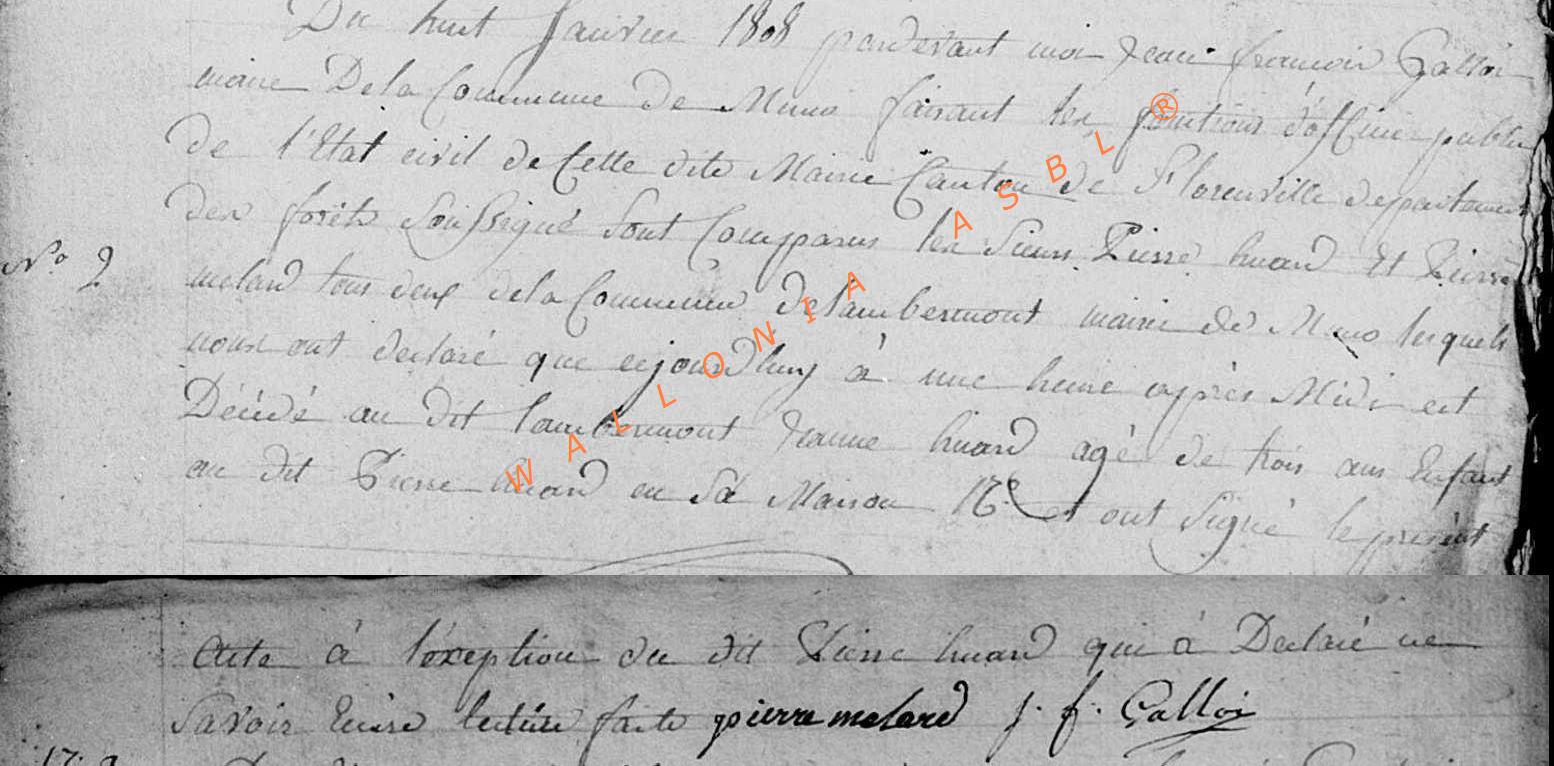 Du huit Janvier 1808 pardevant moi Jean françois Galloi
maire Dela Commune de Muno faisant les fonctions d'officier public
de l'Etat civil de Cette dite Mairie Canton de Florenville departement
des forêts Soussigné Sont Comparus les Sieurs Pierre huard Et Pierre
N.o 2
melard tous deux dela Commune Delambermont mairie de Muno lesquels
nous ont declaré que cejourDhuy à une heure après Midi est
Décédé au dit lambermont Jeanne huard agé de trois ans Enfant
du dit Pierre huard en Sa Maison et ont Signé le présent
WALLONIA ASBL ®
Acte à l'éxeption du dit Pierre huard qui à Declaré ne
Savoir Ecrire lecture faite pierre melard J. f. Galloi